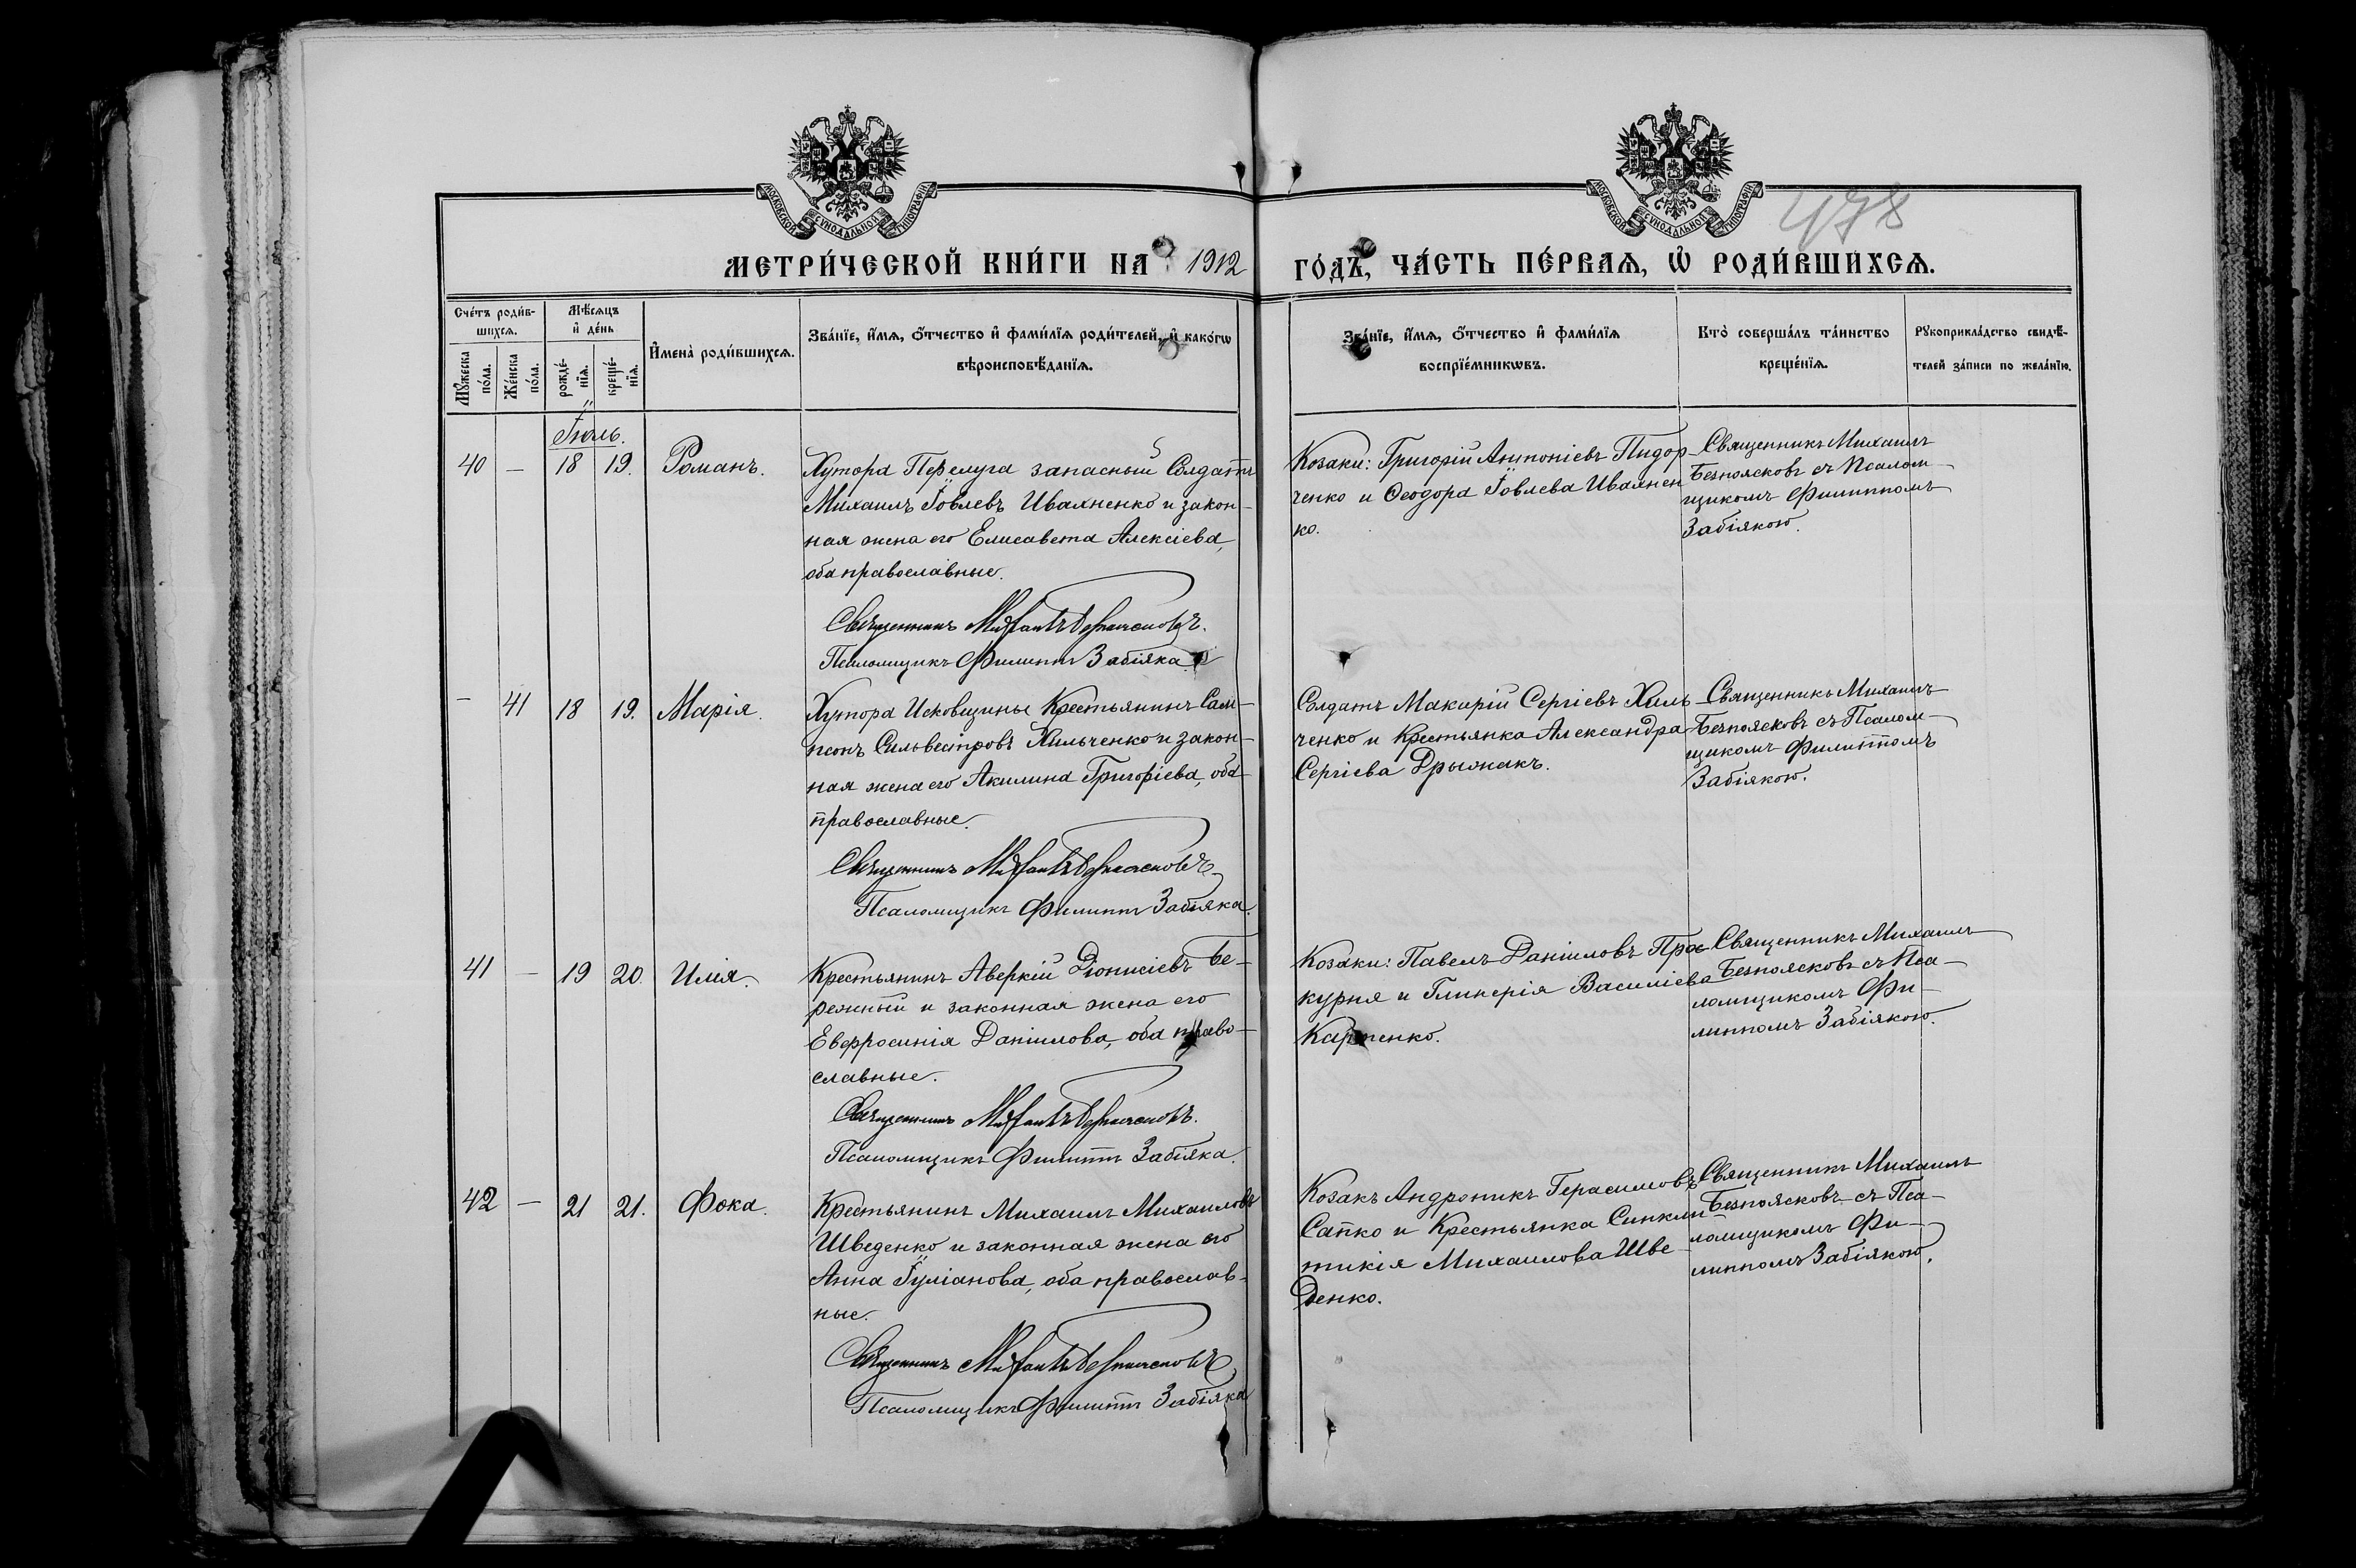 МОСКОВСКОЙ СѴНОДАЛЬНОЙ ТИПОГРАФІИ
МОСКОВСКОЙ СѴНОДАЛЬНОЙ ТИПОГРАФІИ
478
МЕТРИ́ЧЕСКОЙ КНИ́ГИ НА 1912 ГО́ДЪ, ЧА́СТЬ ПЕ́РВАѦ, Ѡ҆ РОДИ́ВШИХСѦ.
Сче́тъ роди́в-
шихсѧ.
Мꙋ́жеска по́ла.
Же́нска по́ла.
Мѣ́сѧцъ
и҆ де́нь
рожде́-
нїѧ.
креще́-
нїѧ.
И҆мена̀ роди́вшихсѧ.
Зва́нїе, и҆́мѧ, ѻ҆́тчество и҆ фами́лїѧ роди́телей, и҆ како́гѡ
вѣроисповѣ́данїѧ.
Зва́нїе, и҆́мѧ, ѻ҆́тчество и҆ фами́лїѧ
воспрїе́мникѡвъ.
Кто̀ соверша́лъ та́инство
креще́нїѧ.
Рꙋкоприкла́дство свидѣ́-
телей за́писи по жела́нїю.
Іюль.
40 — 18 19. Романъ.
Хутора Перелуга запасный Солдатъ
Михаилъ Іовлевъ Ивахненко и закон-
ная жена его Елисавета Алексіева,
оба православные.
Священникъ Михаилъ Безпоясковъ.
Псаломщикъ Филиппъ Забіяка
Козаки: Григорій Антоніевъ Пидор-
ченко и Ѳеодора Іовлева Ивахнен
ко.
Священникъ Михаилъ
Безпоясковъ съ Псалом-
щикомъ Филиппомъ
Забіякою.
— 41 18 19. Марія.
Хутора Исковщины Крестьянинъ Сам-
псонъ Сильвестровъ Хильченко и закон-
ная жена его Акилина Григоріева, оба
православные.
Священникъ Михаилъ Безпоясковъ
Псаломщикъ Филиппъ Забіяка.
Солдатъ Макарій Сергіевъ Хиль-
ченко и Крестьянка Александра
Сергіева Дрыжакъ.
Священникъ Михаилъ
Безпоясковъ съ Псалом-
щикомъ Филиппомъ
Забіякою.
41 — 19 20. Илія.
Крестьянинъ Аверкій Діонисіевъ Бе-
режный и законная жена его
Евфросинія Даніилова, оба право-
славные.
Священникъ Михаилъ Безпоясковъ.
Псаломщикъ Филиппъ Забіяка.
Козаки: Павелъ Даніиловъ Про-
курня и Гликерія Василіева
Карпенко.
Священникъ Михаилъ
Безпоясковъ съ Пса-
ломщикомъ Фи-
липпомъ Забіякою.
42 — 21 21. Фока.
Крестьянинъ Михаилъ Михаиловъ
Шведенко и законная жена его
Анна Іуліанова, оба православ-
ные.
Священникъ Михаилъ Безпоясковъ
Псаломщикъ Филиппъ Забіяка
Козакъ Андроникъ Герасимовъ
Сапко и Крестьянка Синкли
тикія Михаилова Шве-
денко.
Священникъ Михаилъ
Безпоясковъ съ Пса-
ломщикомъ Фи-
липпомъ Забіякою.